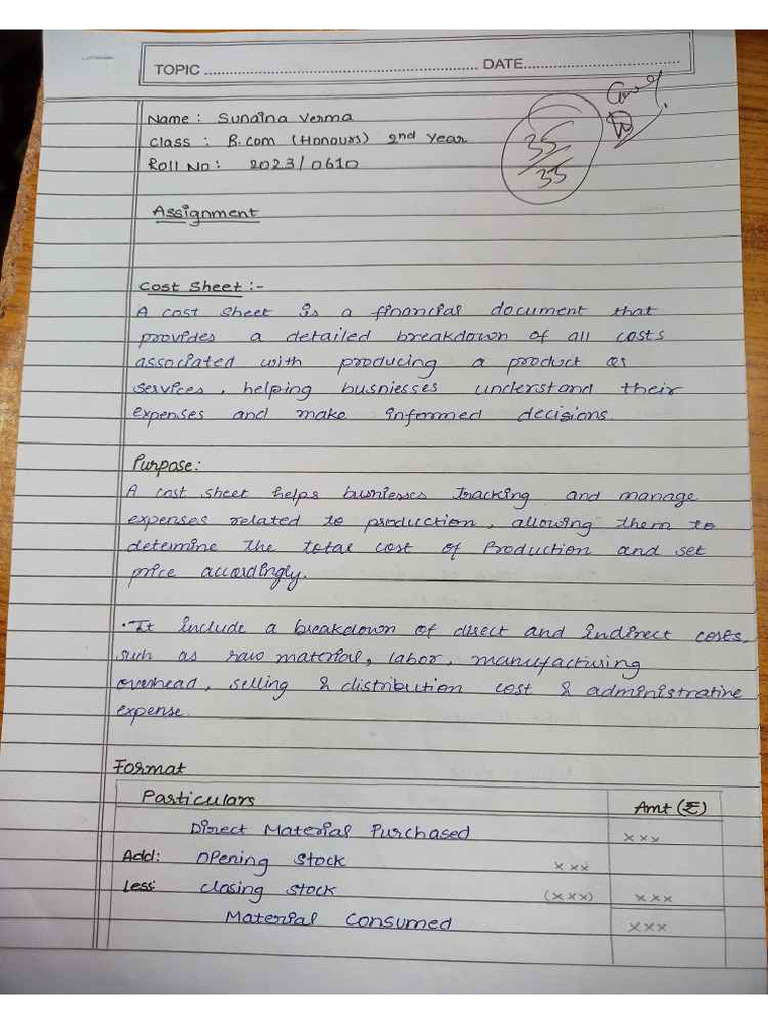 TOPIC ........................ DATE........................
Name : Sunaina Verma
Class : B.com (Honours) 2nd Year
Roll No : 2023/0610
35/35
Assignment
Cost Sheet :-
A cost sheet is a financial document that
provides a detailed breakdown of all costs
associated with producing a product or
services, helping busniesses understand their
expenses and make informed decisions.
Purpose:
A cost sheet helps busniesses tracking and manage
expenses related to production, allowing them to
determine the total cost of Production and set
price accordingly.
• It include a breakdown of direct and indirect costs,
such as raw material, labor, manufacturing
overhead, selling & distribution cost & administrative
expense.
Format
Particulars Amt (₹)
Direct Material Purchased xxx
Add: Opening Stock xxx
Less: Closing Stock (xxx) xxx
Material Consumed xxx